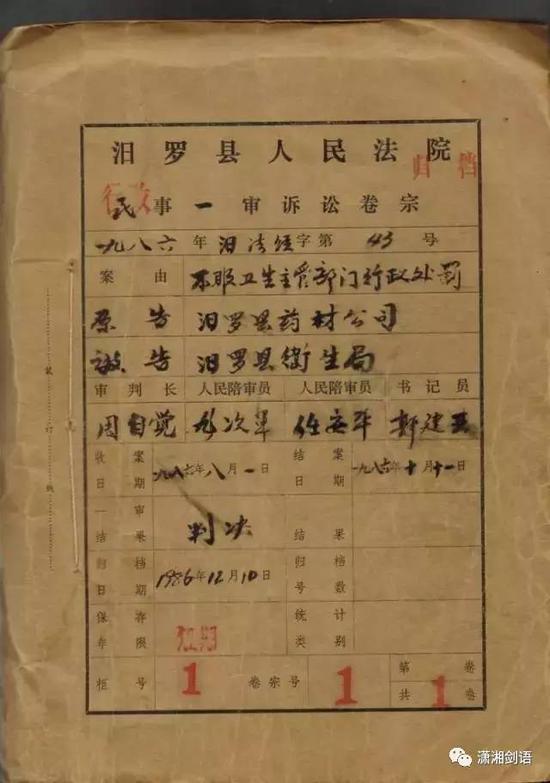 汨罗县人民法院
归档
行政
民事一审诉讼卷宗
一九八六年汨法经字第43号
案由 不服卫生主管部门行政处罚
原告 汨罗县药材公司
被告 汨罗县衛生局
审判长 人民陪审员 人民陪审员 书记员
周自觉 次军 任安平 建
收案日期 一九八六年八月一日 结案日期 一九八六年十月十一日
一审结果 判决 结果
归档日期 1986年12月10日 归档号数
保存年限 短期 统计类别
柜号 1 卷宗号 1 第卷共1卷
装订线
潇湘剑语